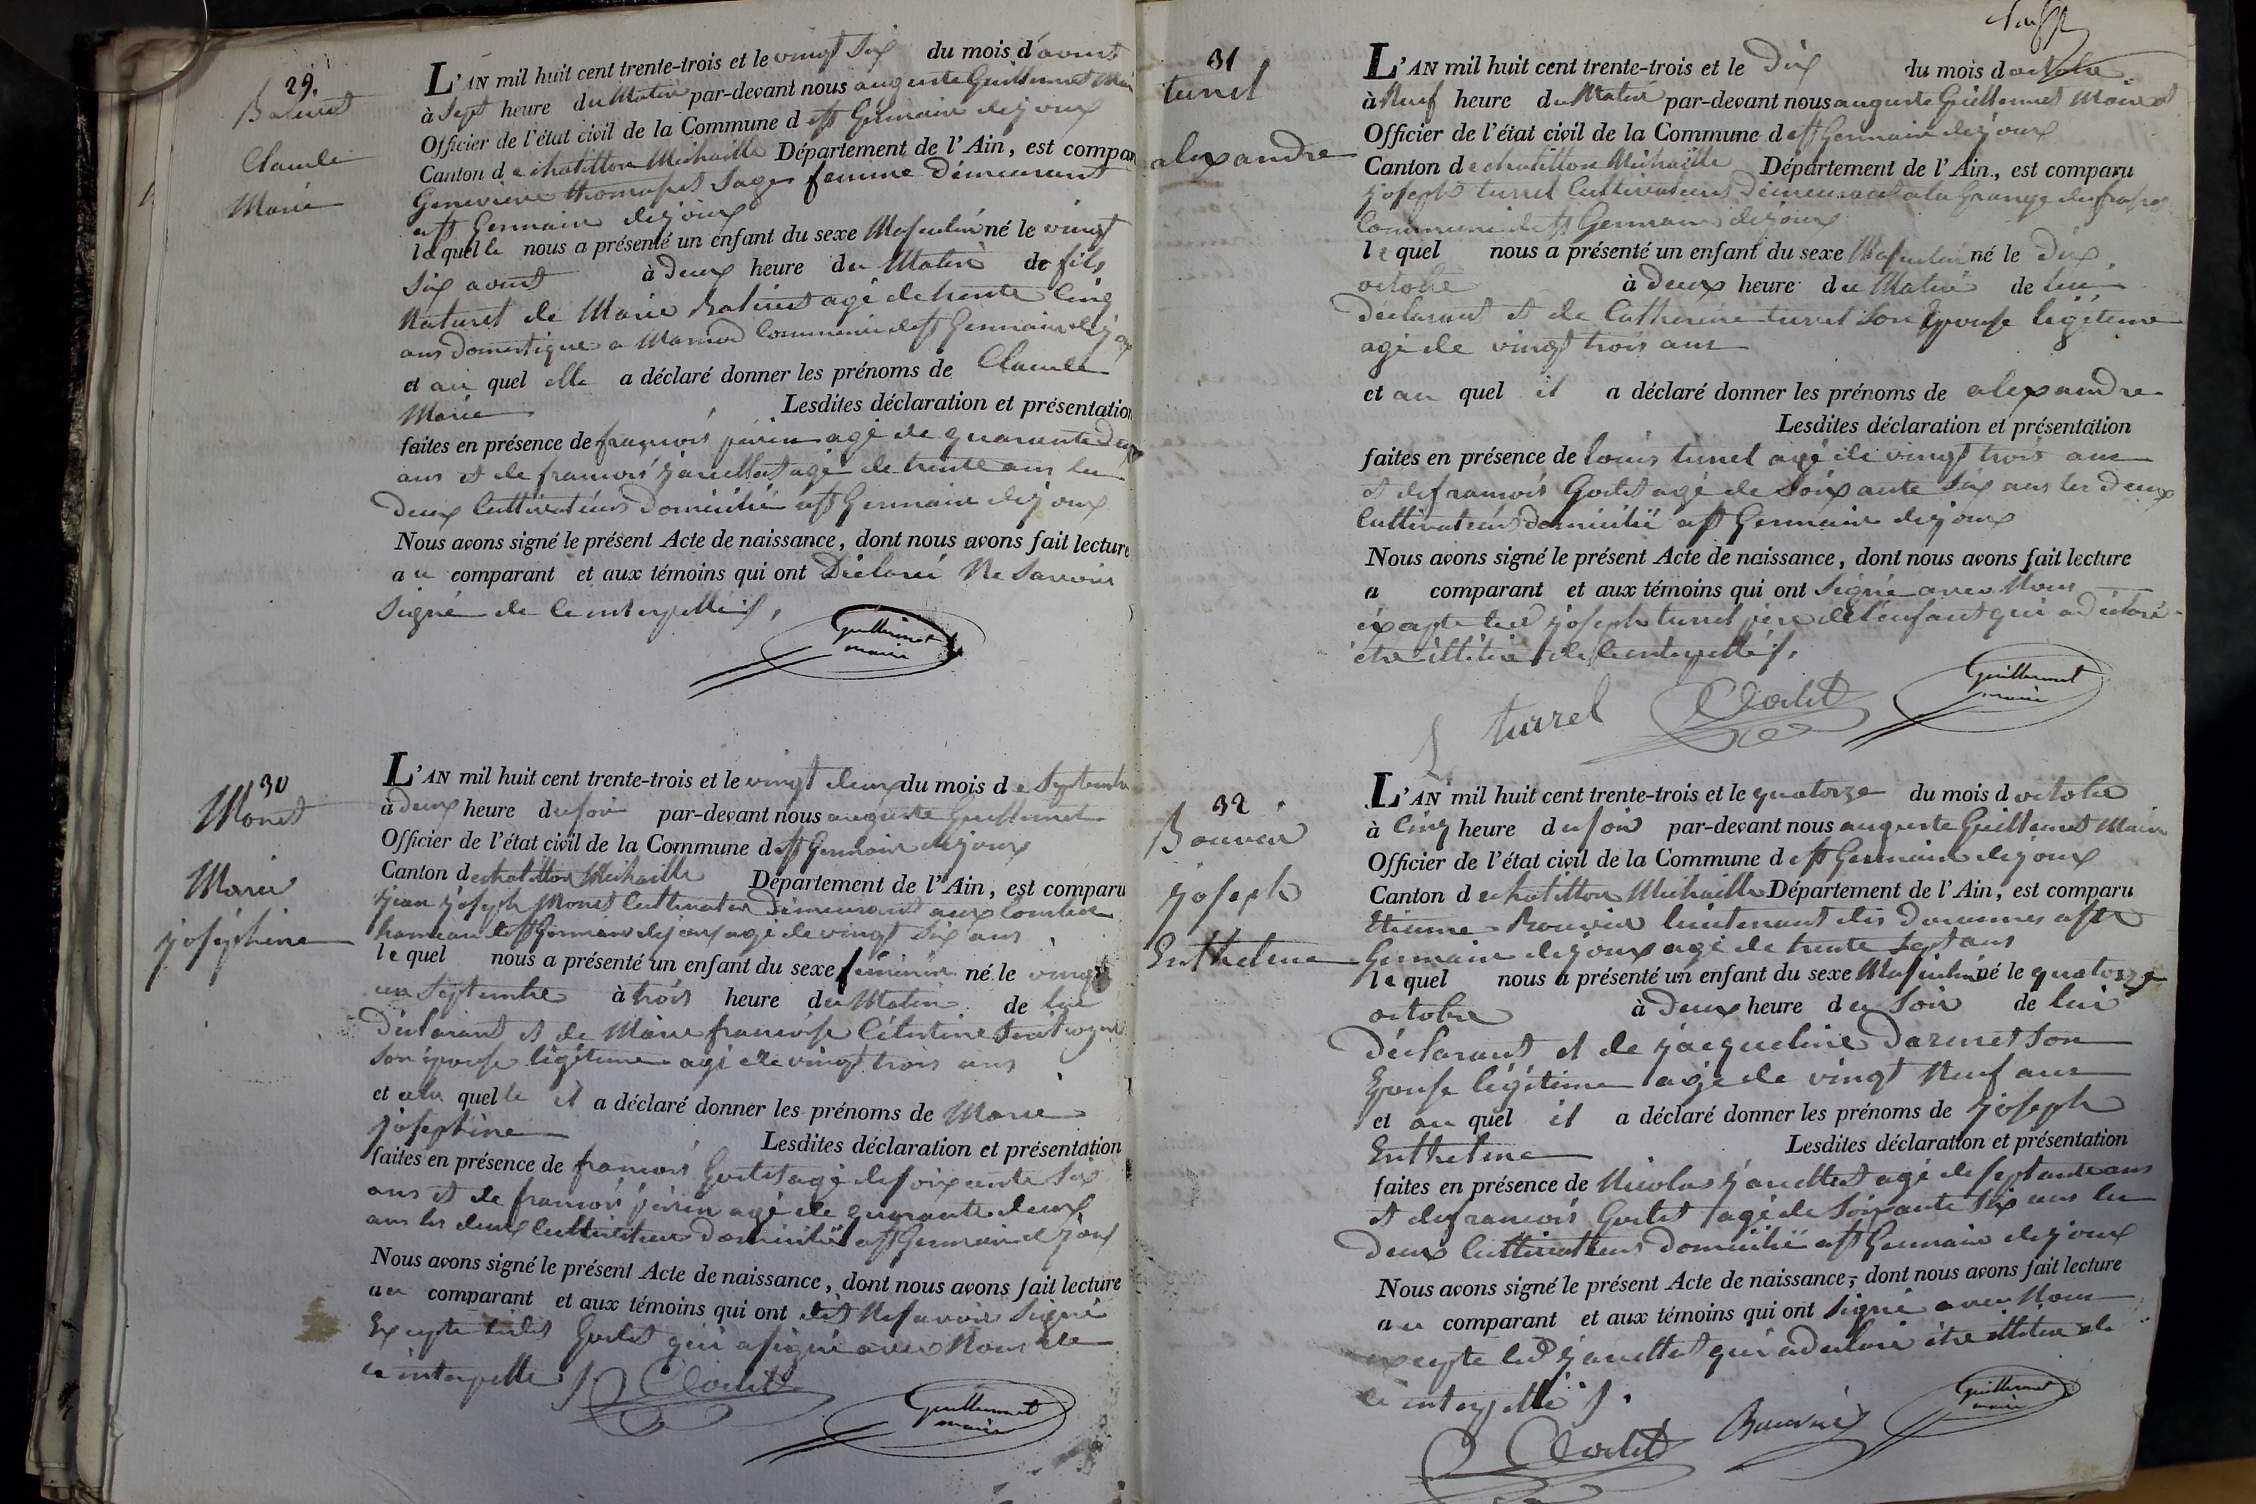 29.
Claude
Marie
L'AN mil huit cent trente-trois et le vingt six du mois d'aoust
à sept heure du Matin par-devant nous auguste Guillermet Maire
Officier de l'état civil de la Commune d e st Germain dejoux
Canton d e chatillon Michaille Département de l'Ain, est comparu
Genevieve sage femme Demeurant
a st Germain dejoux
laquelle nous a présenté un enfant du sexe Masculin né le vingt
six aoust à Deux heure du Matin de fils
Naturel de Marie agé de trente cinq
ans Domestique a commune de st Germain dejoux
et au quel elle a déclaré donner les prénoms de Claude
Marie
Lesdites déclaration et présentation
faites en présence de françois périn agé de quarante deux
ans et de françois agé de trente ans les
Deux Cultivateurs Domicilié a st Germain dejoux
Nous avons signé le présent Acte de naissance, dont nous avons fait lecture
au comparant et aux témoins qui ont Déclaré Ne Savoir
Signé de ce interpellés /.
Guillermet
maire
30
Monet
Marie
joséphine
L'AN mil huit cent trente-trois et le vingt deux du mois d e Septembre
à Deux heure du soir par-devant nous auguste Guillermet
Officier de l'état civil de la Commune d e st Germain dejoux
Canton d e chatillon Michaille Département de l'Ain, est comparu
jean joseph Monet Cultivateur Demeurant aux
hameau de st Germain dejoux agé de vingt six ans
lequel nous a présenté un enfant du sexe féminin né le vingt
un Septembre à trois heure du Matin de lui
Déclarant et de Marie françoise Célestine
son épouse légitime agé de vingt trois ans
et a la quelle il a déclaré donner les prénoms de Marie
joséphine
Lesdites déclaration et présentation
faites en présence de françois Goilet agé de soixante six
ans et de françois périn agé de quarante deux
ans les deux Cultivateurs domicilié a st Germain dejoux
Nous avons signé le présent Acte de naissance, dont nous avons fait lecture
au comparant et aux témoins qui ont dit Ne savoir Signé
Excepte ledit Goilet qui a signé avec Nous de
ce interpellé /.
Guillermet
maire
31
turrel
alexandre
L'AN mil huit cent trente-trois et le Dix du mois d octobre
à Neuf heure du Matin par-devant nous auguste Guillermet Maire et
Officier de l'état civil de la Commune d e st Germain dejoux
Canton d e chatillon Michaille Département de l'Ain., est comparu
joseph turrel Cultivateur Demeurant a la Grange
Commune de st Germain dejoux
lequel nous a présenté un enfant du sexe Masculin né le Dix
octobre à Deux heure du Matin de lui
Déclarant et de Catherine turrel Son Epouse légitime
agé de vingt trois ans
et au quel il a déclaré donner les prénoms de alexandre
Lesdites déclaration et présentation
faites en présence de louis turrel agé de vingt trois ans
et de françois Goilet agé de Soixante Six ans les Deux
Cultivateurs domicilié a st Germain dejoux
Nous avons signé le présent Acte de naissance, dont nous avons fait lecture
a comparant et aux témoins qui ont Signé avec Nous
excepte led joseph turrel père de l'enfant qui a déclaré
être illitiré de ce interpellés /.
L turrel
Guillermet
maire
32
Bouvier
joseph
Enthelme
L'AN mil huit cent trente-trois et le quatorze du mois d octobre
à Cinq heure du soir par-devant nous auguste Guillermet Maire
Officier de l'état civil de la Commune d e st Germain dejoux
Canton d e chatillon Michaille Département de l'Ain, est comparu
Etienne Bouvier lieutenant des Douanes a st
Germain dejoux agé de trente sept ans
lequel nous a présenté un enfant du sexe Masculin né le quatorze
octobre à Deux heure du Soir de lui
Déclarant et de jacqueline Darmet Son
Epouse légitime agé de vingt Neuf ans
et au quel il a déclaré donner les prénoms de joseph
Enthelme
Lesdites déclaration et présentation
faites en présence de Nicolas agé de septante ans
et de françois Goilet agé de Soixante Six ans les
Deux Cultivateurs domicilié a st Germain dejoux
Nous avons signé le présent Acte de naissance, dont nous avons fait lecture
au comparant et aux témoins qui ont Signé avec Nous
excepte led qui a déclaré être illitiré de
ce interpellé /.
Bouvier
Guillermet
maire